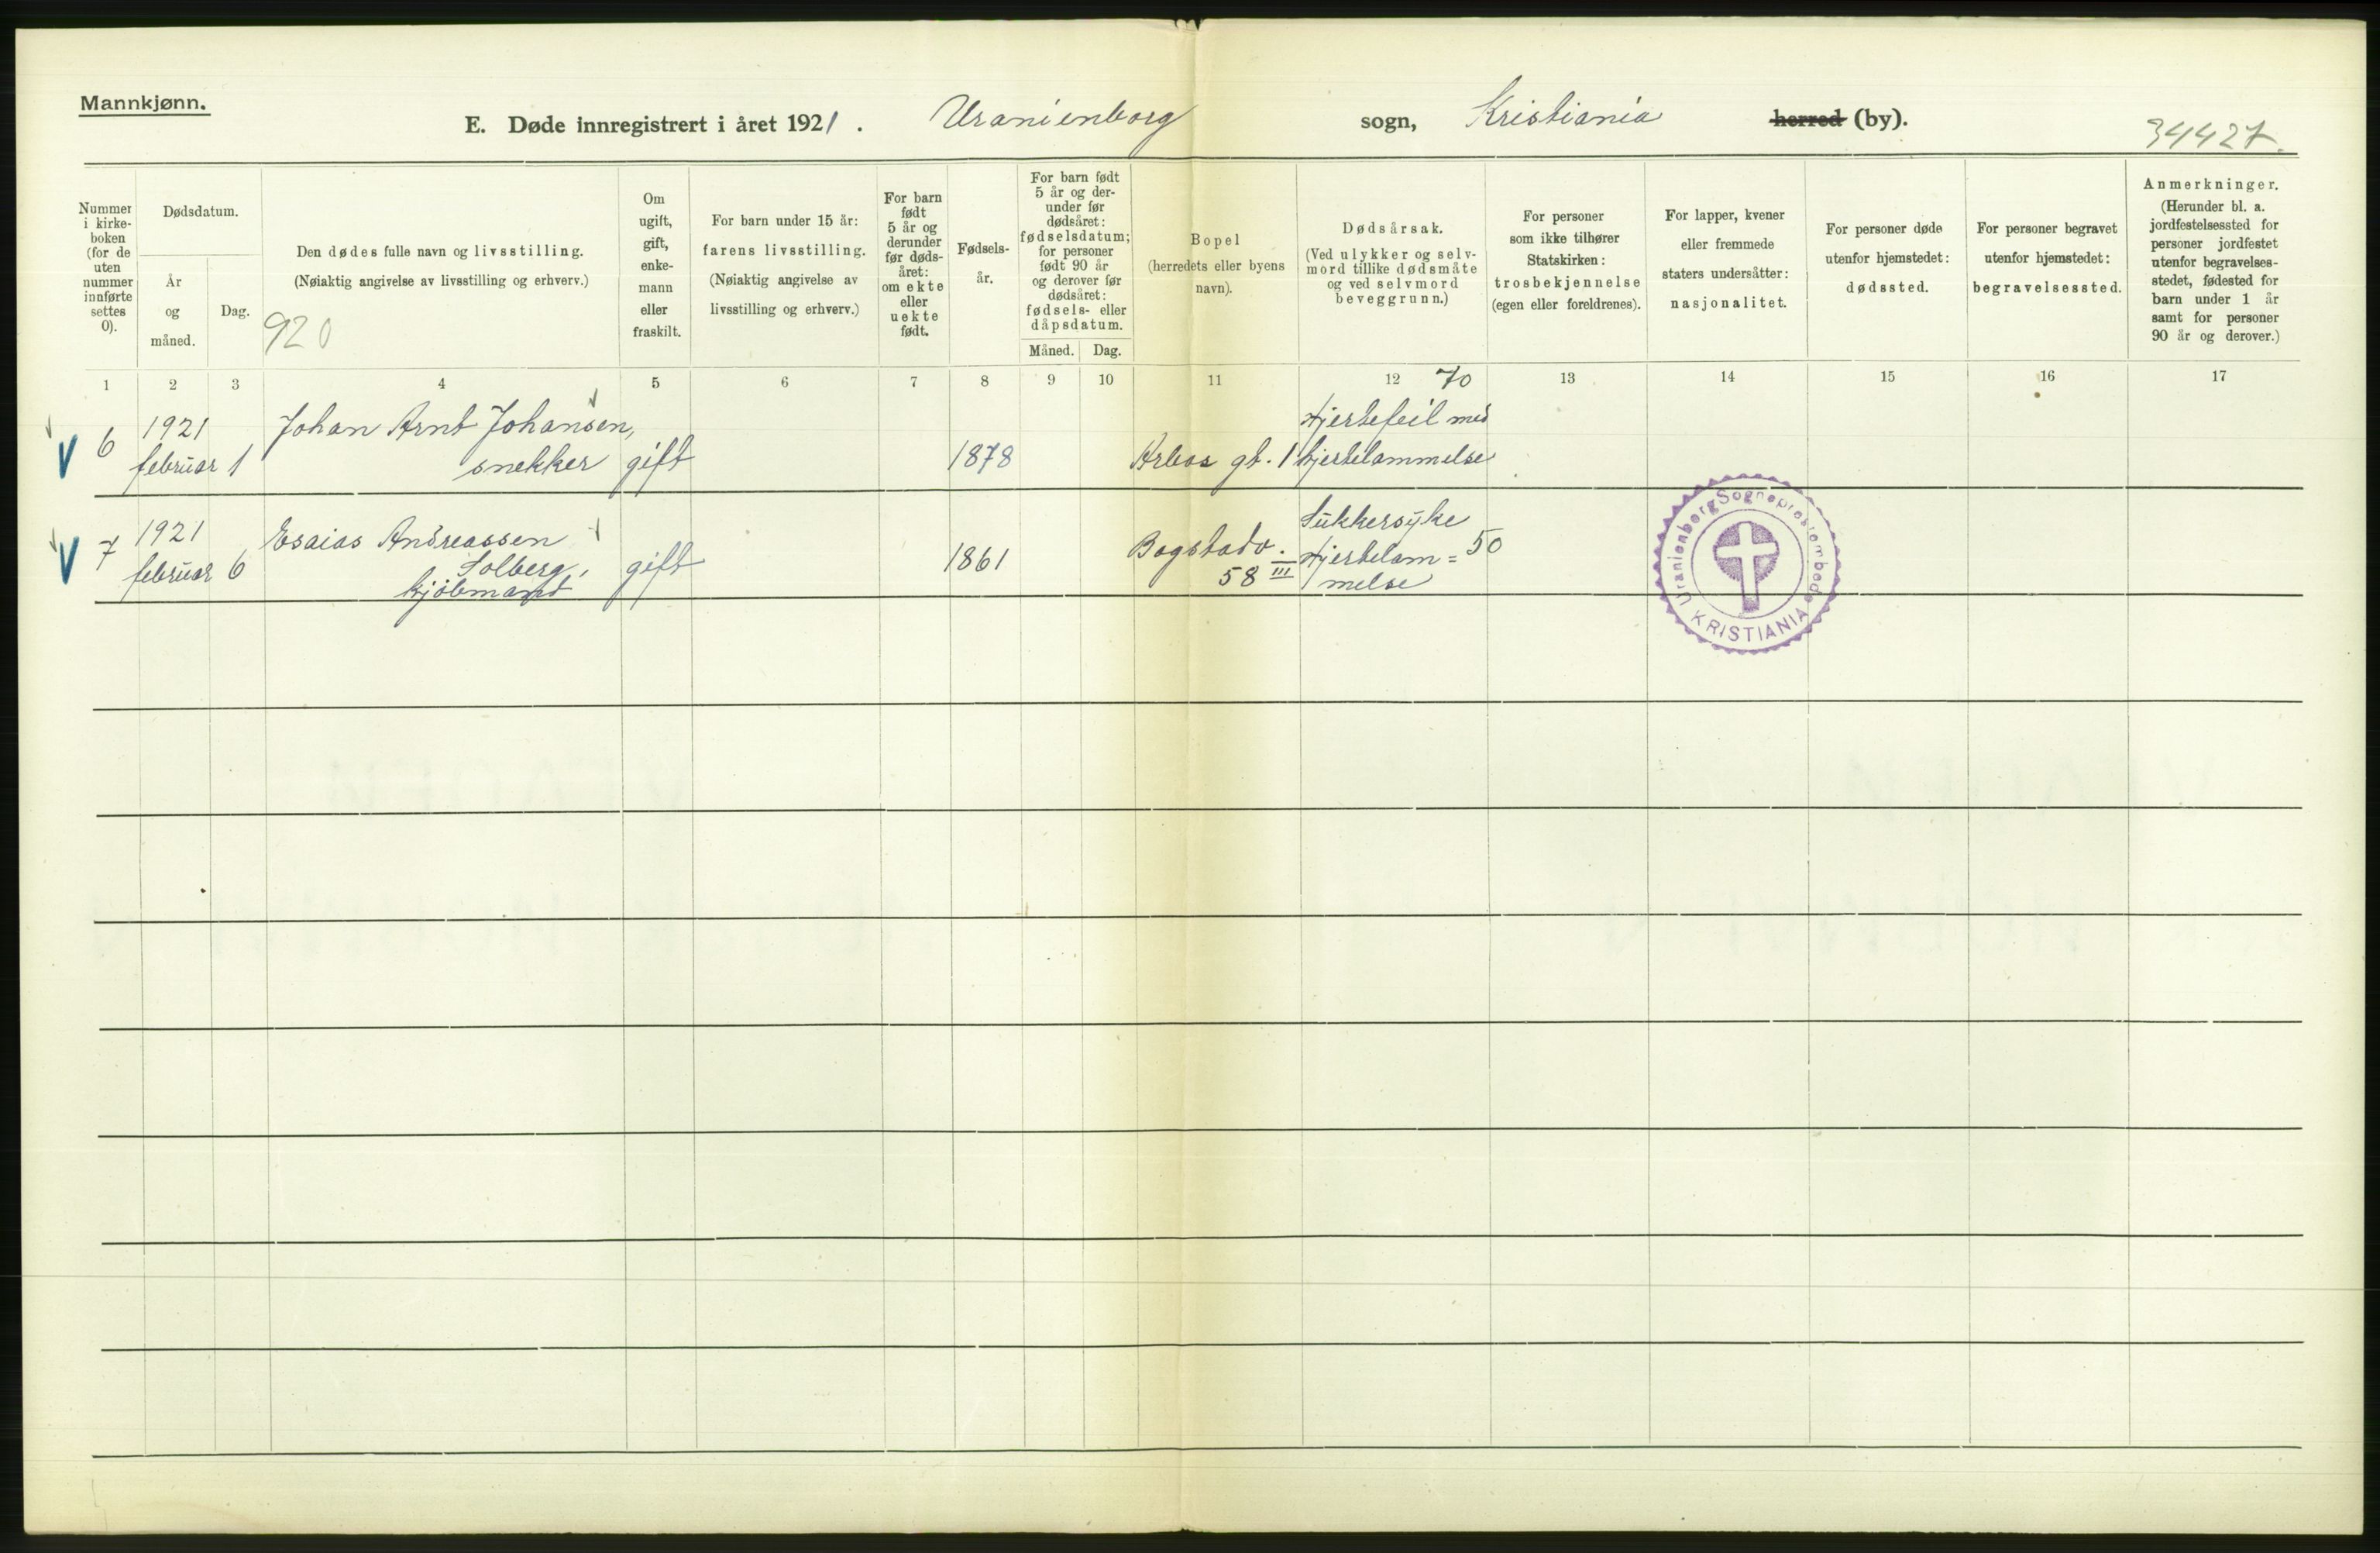 Mannkjønn.
E. Døde innregistrert i året 1921. Uranienborg sogn, Kristiania herred (by).
34427.
Nummer
i kirke-
boken
(for de
uten
nummer
innførte
settes
0).
Dødsdatum.
År
og
måned.
Dag.
Den dødes fulle navn og livsstilling.
(Nøiaktig angivelse av livsstilling og erhverv.)
920
Om
ugift,
gift,
enke-
mann
eller
fraskilt.
For barn under 15 år:
farens livsstilling.
(Nøiaktig angivelse av
livsstilling og erhverv.)
For barn
født
5 år og
derunder
før døds-
året:
om ekte
eller
uekte
født.
Fødsels-
år.
For barn født
5 år og der-
under før
dødsåret:
fødselsdatum;
for personer
født 90 år
og derover før
dødsåret:
fødsels- eller
dåpsdatum.
Måned. Dag.
Bopel
(herredets eller byens
navn).
Dødsårsak.
(Ved ulykker og selv-
mord tillike dødsmåte
og ved selvmord
beveggrunn.)
For personer
som ikke tilhører
Statskirken:
trosbekjennelse
(egen eller foreldrenes).
For lapper, kvener
eller fremmede
staters undersåtter:
nasjonalitet.
For personer døde
utenfor hjemstedet:
dødssted.
For personer begravet
utenfor hjemstedet:
begravelsessted.
Anmerkninger.
(Herunder bl. a.
jordfestelsessted for
personer jordfestet
utenfor begravelses-
stedet, fødested for
barn under 1 år
samt for personer
90 år og derover.)
1 2 3 4 5 6 7 8 9 10 11 12 70 13 14 15 16 17
V 6 1921 Johan Arnt Johansen, Hjertefeil med
februar 1 snekker gift 1878 Arbos gt. 1 hjertelammelse
V 7 1921 Esaias Andreassen Sukkersyke
februar 6 Solberg, gift 1861 Bogstadv. Hjertelam= 50
kjöbmand 58 III melse
Uranienborg Sogneprestembede
KRISTIANIA